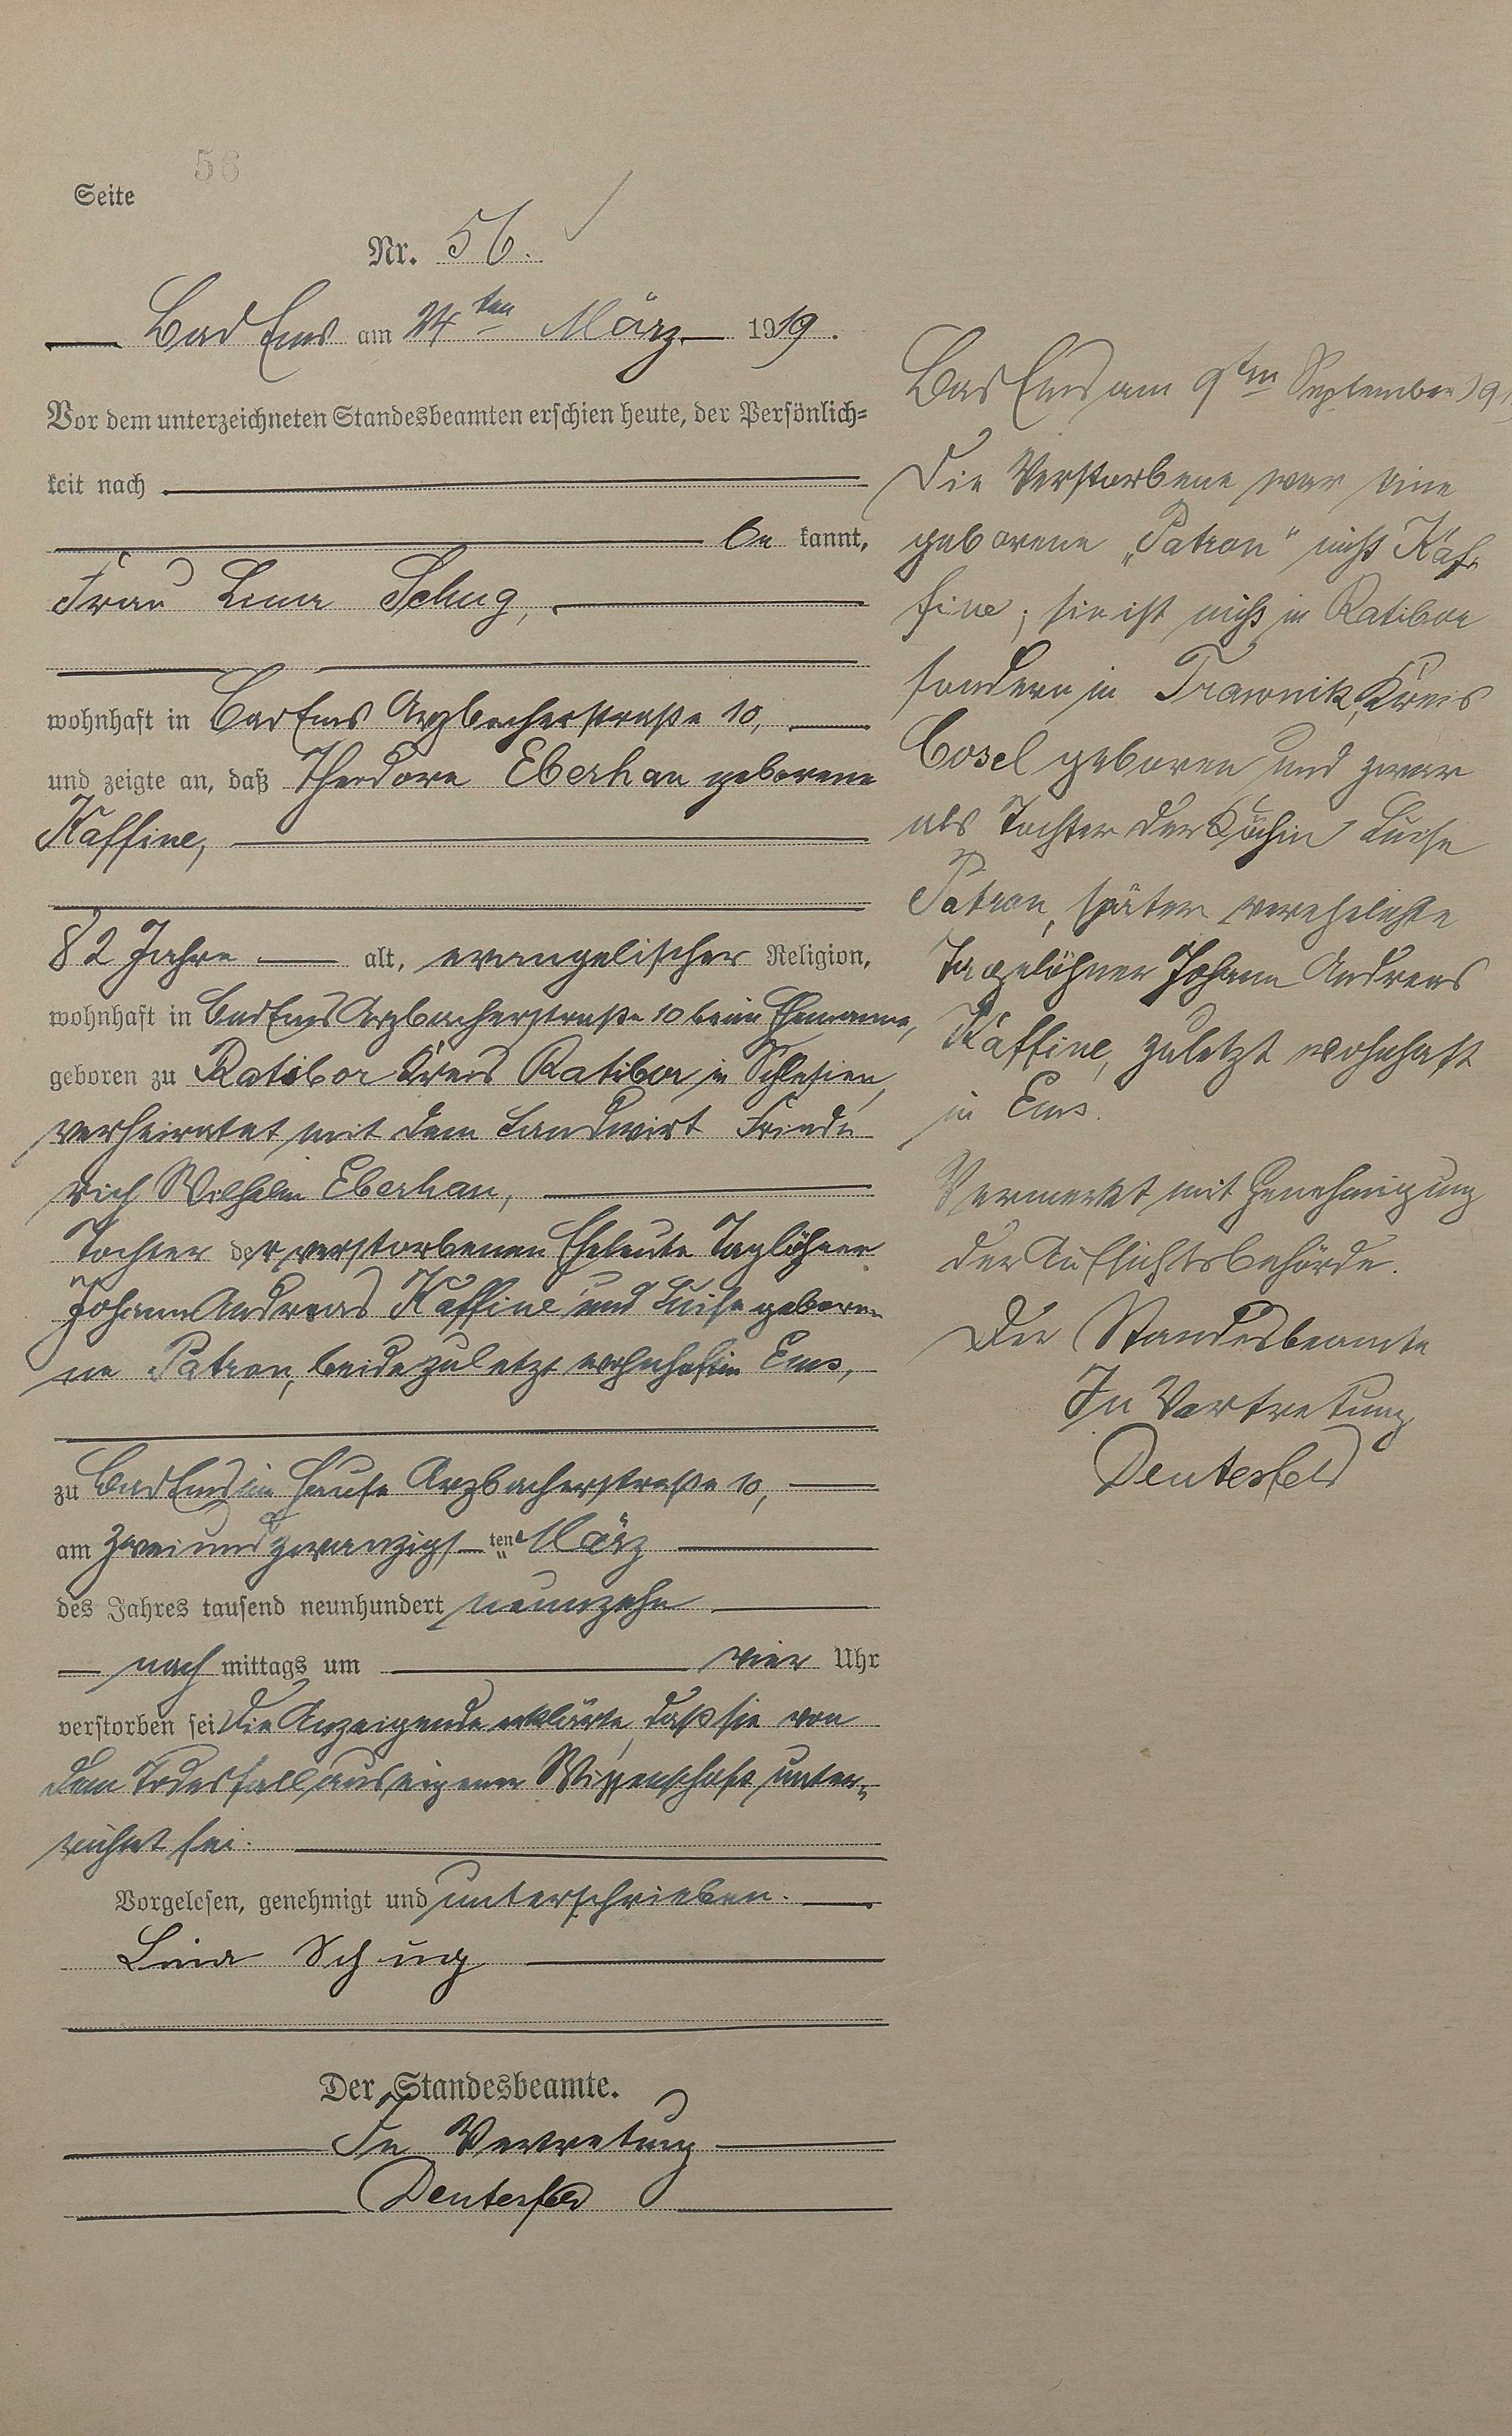 56
Seite
Nr. 56.
Bad Ems am 24ten März 1919.
Vor dem unterzeichneten Standesbeamten erschien heute, der Persönlich=
keit nach
be kannt,
Frau Lina Schug,
wohnhaft in Bad Ems Arzbacherstraße 10,
und zeigte an, daß Theodore Eberhan geborene
Kaffine,
82 Jahre alt, evangelischer Religion,
wohnhaft in Bad Ems Arzbacherstraße 10 beim Ehemanne,
geboren zu Ratibor Kreis Ratibor in Schlesien,
verheiratet mit dem Landwirt Friede
rich Wilhelm Eberhan,
Tochter der verstorbenen Eheleute Taglöhner
Johann Andreas Kaffine und Luise gebore=
ne Patron, beide zuletzt wohnhaft in Ems,
zu Bad Ems im Hause Arzbacherstraße 10,
am zweiundzwanzigsten März
des Jahres tausend neunhundert neunzehn
nach mittags um vier Uhr
verstorben sei. Die Anzeigende erklärte, daß sie von
dem Todesfall aus eigener Wissenschaft unter=
richtet sei.
Vorgelesen, genehmigt und unterschrieben.
Lina Schug
Der Standesbeamte.
In Vertretung
Deutesfeld
Bad Ems am 9ten September 191
Die Verstorbene war eine
geborene „Patron" nicht Kaf=
fine; sie ist nicht in Ratibor
sondern in Trawnik, Kreis
Cosel geboren und zwar
als Tochter der Köchin Luise
Patron, später verehelichte
Tagelöhner Johann Andreas
Kaffine, zuletzt wohnhaft
in Ems.
Vermerkt mit Genehmigung
der Aufsichtsbehörde.
Der Standesbeamte
In Vertretung
Deutesfeld